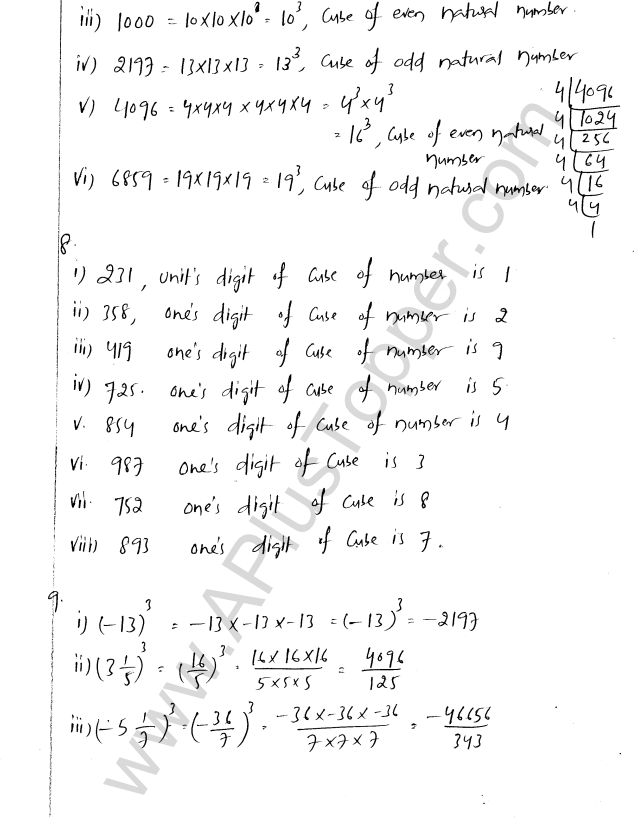 iii) 1000 = 10×10×10 = 10³, Cube of even natural number.
iv) 2197 = 13×13×13 = 13³, Cube of odd natural number
v) 4096 = 4×4×4 × 4×4×4 = 4³×4³
= 16³, Cube of even natural number
4 | 4096
4 | 1024
4 | 256
4 | 64
4 | 16
4 | 4
1
vi) 6859 = 19×19×19 = 19³, Cube of odd natural number.
8.
i) 231, unit's digit of Cube of number is 1
ii) 358, one's digit of Cube of number is 2
iii) 419 one's digit of Cube of number is 9
iv) 725. one's digit of Cube of number is 5.
v. 854 one's digit of Cube of number is 4
vi. 987 one's digit of Cube is 3
vii. 752 one's digit of Cube is 8
viii) 893 one's digit of Cube is 7.
9.
i) (-13)³ = -13 × -13 × -13 = (-13)³ = -2197
ii) (3 1/5)³ = (16/5)³ = 16×16×16 / 5×5×5 = 4096/125
iii) (-5 1/7)³ = (-36/7)³ = -36×-36×-36 / 7×7×7 = -46656/343
www.APlusTopper.com